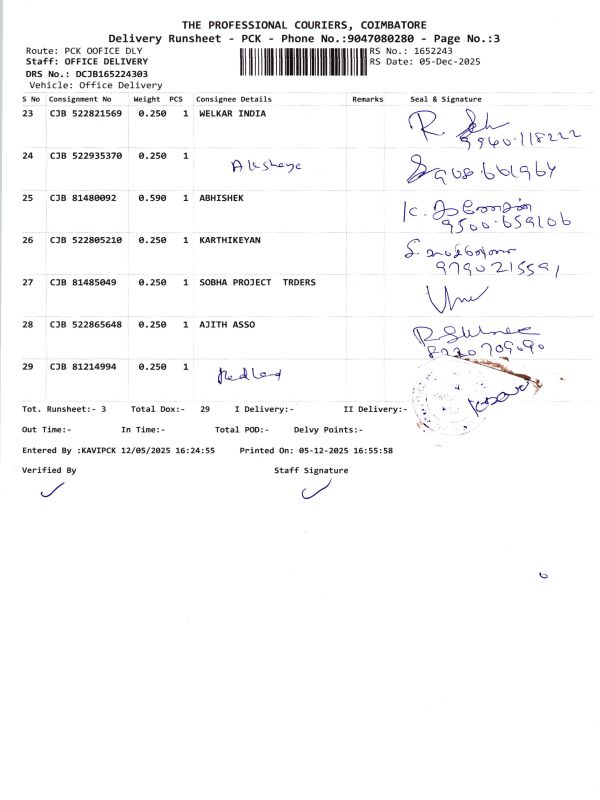 THE PROFESSIONAL COURIERS, COIMBATORE
Delivery Runsheet - PCK - Phone No.:9047080280 - Page No.:3
Route: PCK OOFICE DLY RS No.: 1652243
Staff: OFFICE DELIVERY RS Date: 05-Dec-2025
DRS No.: DCJB165224303
Vehicle: Office Delivery
S No Consignment No Weight PCS Consignee Details Remarks Seal & Signature
23 CJB 522821569 0.250 1 WELKAR INDIA R.
9940.118222
24 CJB 522935370 0.250 1 Akshaya
25 CJB 81480092 0.590 1 ABHISHEK K.
9500.659106
26 CJB 522805210 0.250 1 KARTHIKEYAN
9790215591
27 CJB 81485049 0.250 1 SOBHA PROJECT TRDERS
28 CJB 522865648 0.250 1 AJITH ASSO
8220709090
29 CJB 81214994 0.250 1 Medland
Tot. Runsheet:- 3 Total Dox:- 29 I Delivery:- II Delivery:-
Out Time:- In Time:- Total POD:- Delvy Points:-
Entered By :KAVIPCK 12/05/2025 16:24:55 Printed On: 05-12-2025 16:55:58
Verified By Staff Signature